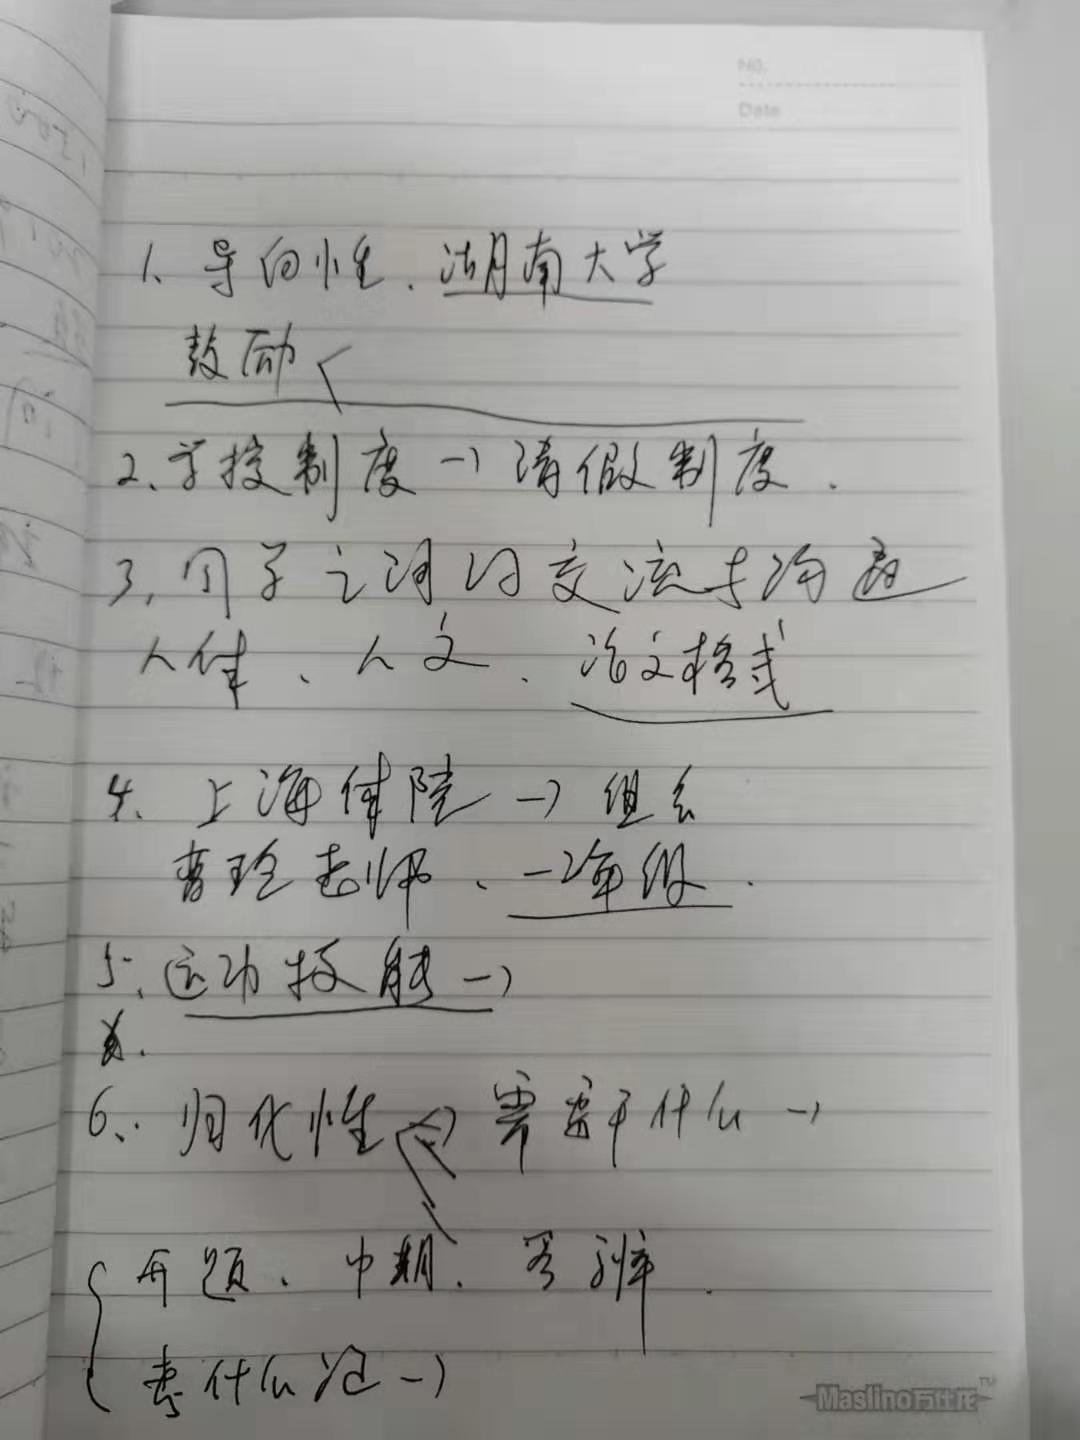 No.
Date
1、导向性、湖南大学
鼓励
2、学校制度→请假制度.
3、同学之间的交流与沟通
人体、人文、论文格式
4、上海体院→组会
曹玲老师、一2年级.
5、运动技能→
6、归化性→需要干什么→
开题、中期、答辩.
考什么证→
Maslino万仕龙™